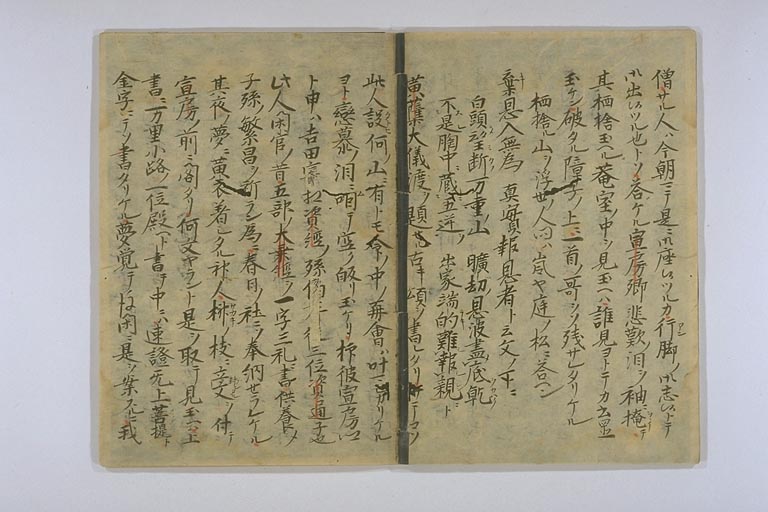 僧サル人ハ今朝ニテ是ニ御座候ツルカ行脚ノ御志候トテ
御出候ツル也トソ答ケル宣房卿悲歎ノ泪ヲ袖掩テ
其栖捨玉ル菴室ノ中ヲ見玉ヘハ誰見ヨトテカ
玉ケン破タル障子ノ上ニ一首ノ哥ヲソ残サレタリケル
栖捨ル山ヲ浮世ノ人問ハ嵐ヤ庭ノ松ニ答ヘン
棄恩入無為 真實報恩者ト云文ノ下ニ
白頭望断万重山 曠劫恩波盡底乾
不是胸中蔵五逆 出家端的難報親ト
黄蘗大儀渡ヲ題セル古キ頌ヲ書レタリ
此人設何ノ山有トモ命ノ中ノ再會ハ叶
ヨト戀慕ノ泪ニ咽テ空ク皈リ玉ケリ抑彼宣房
ト申ハ吉田 資經ノ孫 三位資通子也
此人閑官ノ昔五部ノ大乗經ヲ一字三礼ニ書供養ノ
子孫ノ繁昌ヲ祈ラン為ニ春日ノ社ニソ奉納セラレケル
其夜ノ夢ニ黄衣着タル神人榊ノ枝ニ立文ヲ付テ
宣房ノ前ニ閣タリ何文ヤラント是ヲ取テ見玉ヘハ上
書ニ万里小路一位殿ヘト書テ中ニハ速證无上菩提ト
金字ニテソ書タリケル夢覚テ後閑ニ是ヲ案スルニ我